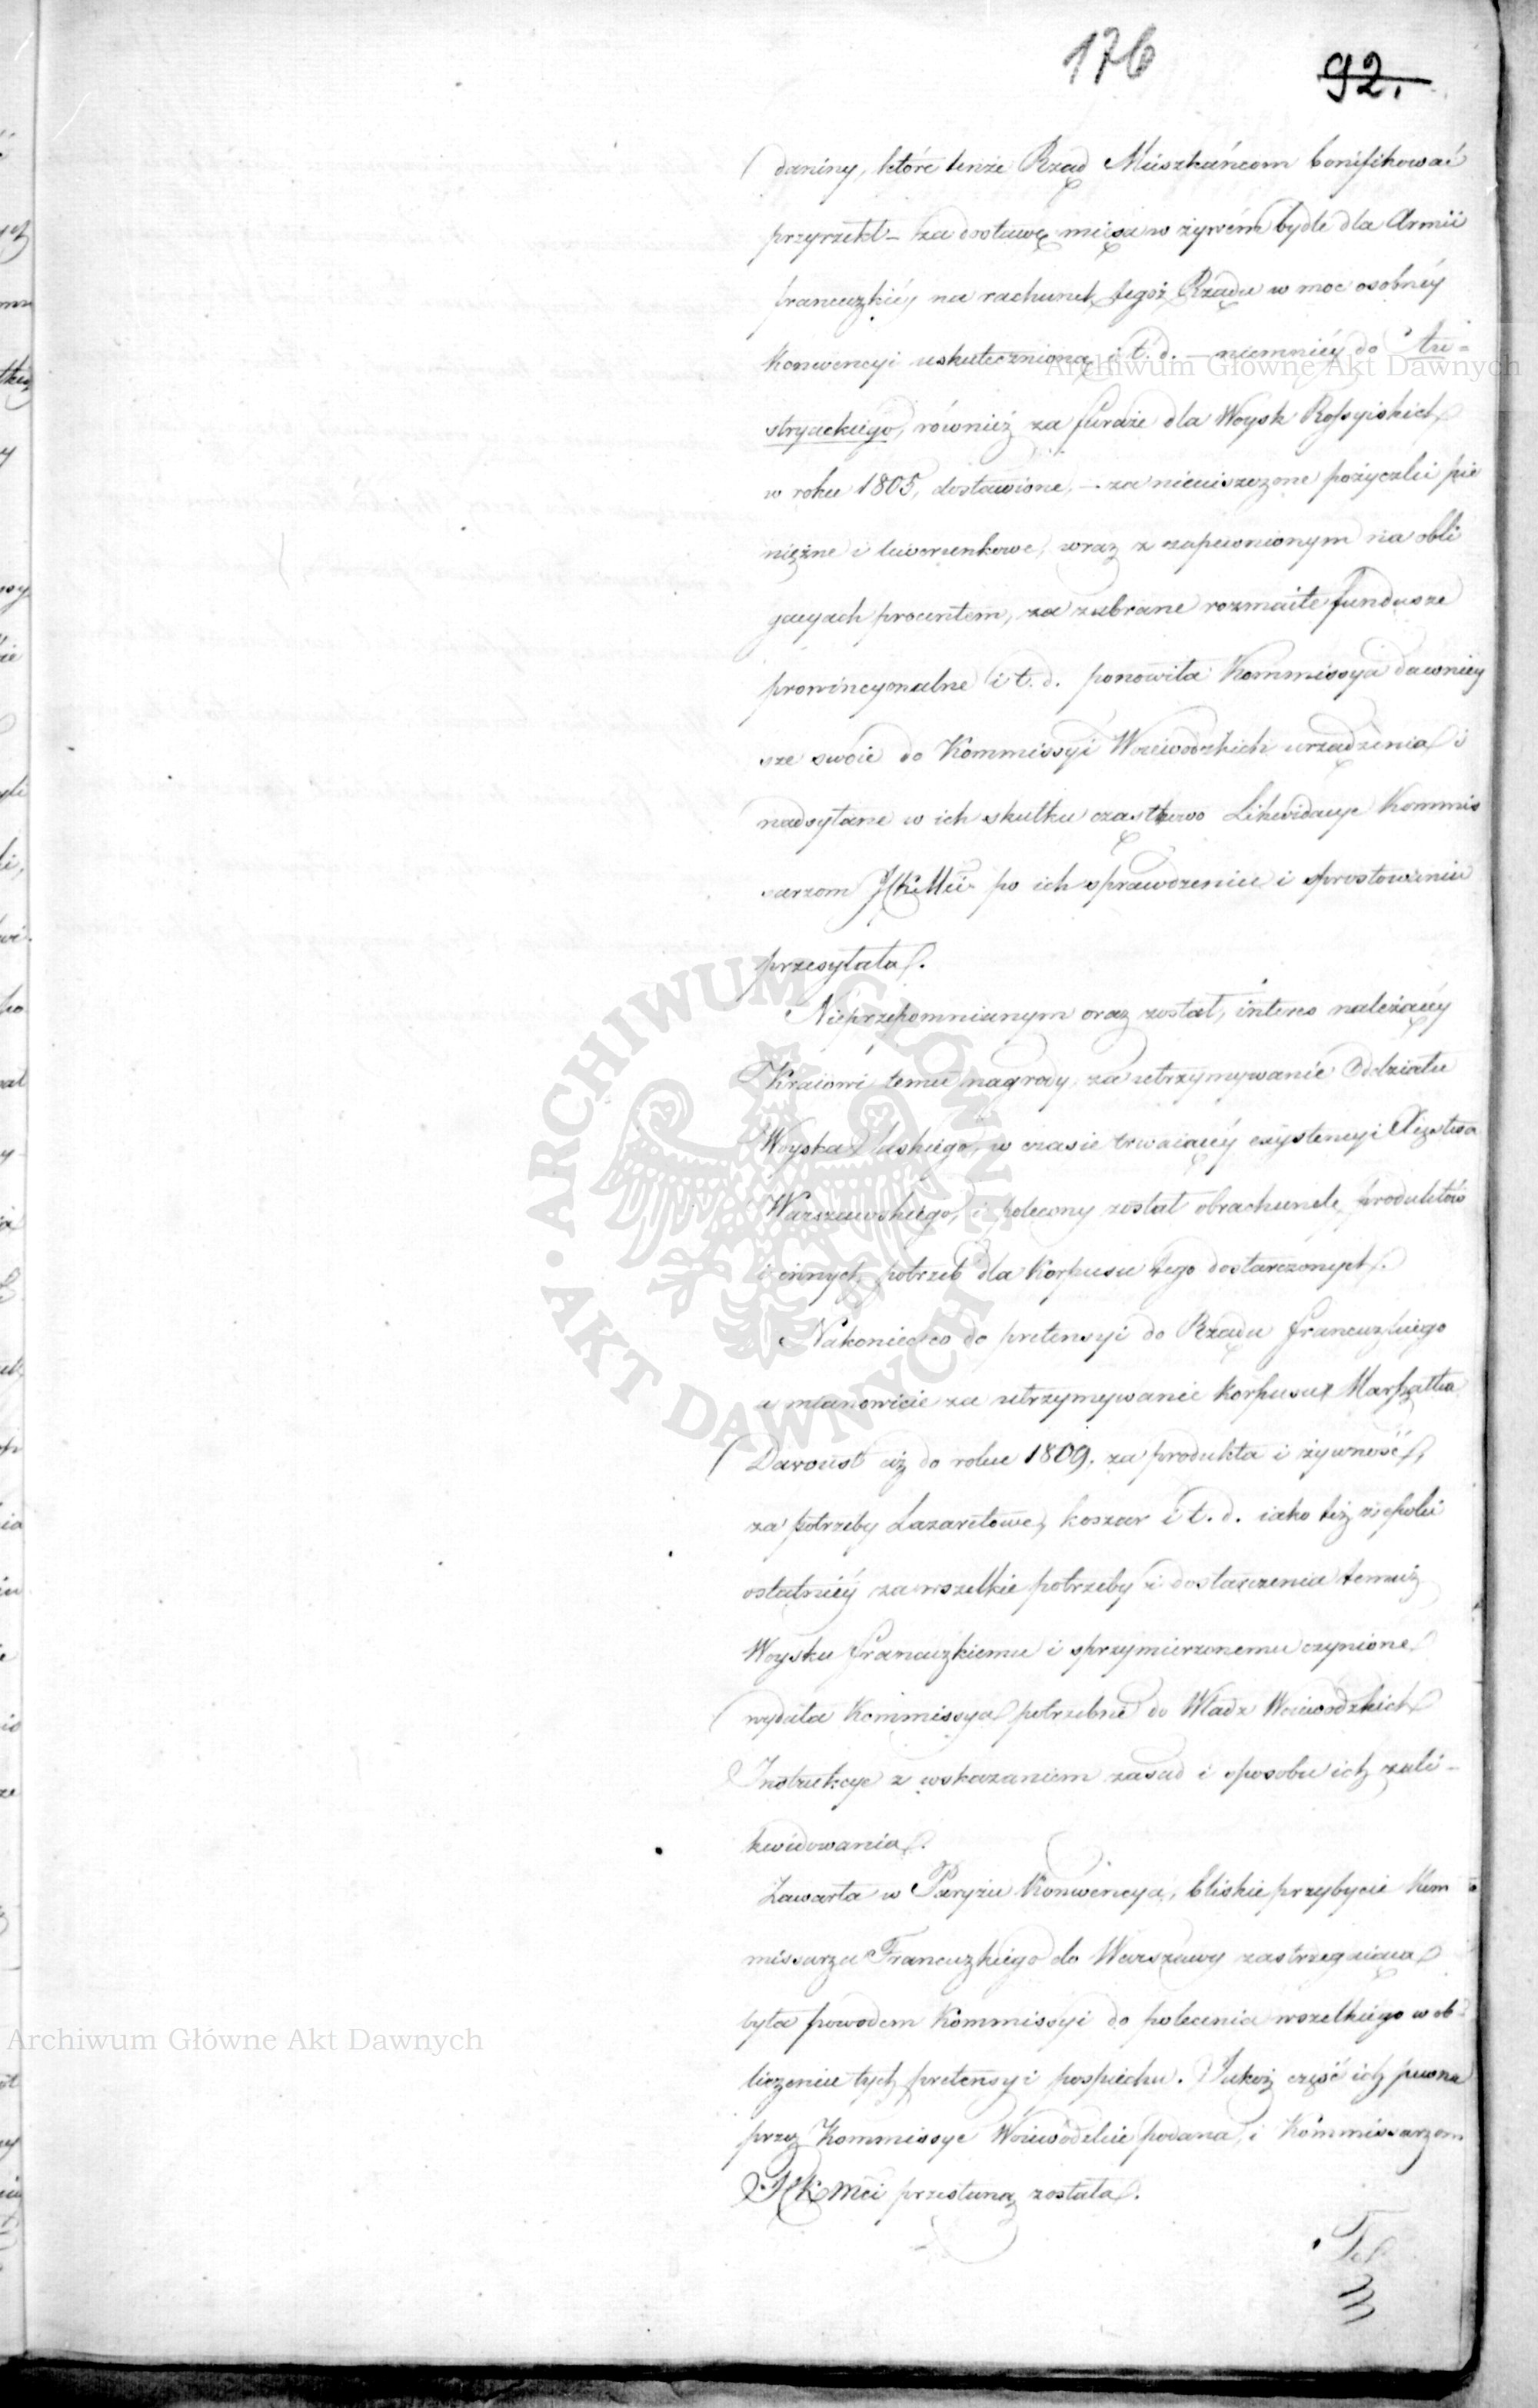 176
92.
daniny, które tenże Rząd Mieszkańcom bonifikować
przyrzekł – za dostawę mięsa w żywém bydle dla Armii
francuzkiéy na rachunek tegoż Rządu w moc osobnéy
Konwencyi uskutecznioną i t. d. – niemniéy do Au-
stryackiégo, również za furaże dla Woysk Rossyiskich
w roku 1805, dostawione, – za nieuiszczone pożyczki pie
niężne i liwerunkowe, wraz z zapewnionym na obli
gacyach procentem, za zabrane rozmaite fundusze
prowincyonalne i t. d. ponowiła Kommissya dawniey
sze swóie do Kommissyi Woiewódzkich urządzenia i
nadsyłane w ich skutku cząstkowo Likwidacye Kommis
sarzom JKMci po ich sprawdzeniu i sprostowaniu
przesyłała.
Nieprzepomnianym oraz został, interes należącéy
Kraiowi temu nagrody za utrzymywanie Oddziału
Woyska Saskiego, w czasie trwaiącéy exystencyi Xięstwa
Warszawskiego, i polecony został obrachunek produktów
i innych potrzeb dla Korpusu tego dostarczonych.
Nakoniec co do pretensyi do Rządu francuzkiego
a mianowicie za utrzymywanie Korpusu Marszałka
Davoust aż do roku 1809. za produkta i żywność,
za potrzeby Lazaretowe, koszar i t. d. iako też z epoki
ostatniéy za wszelkie potrzeby i dostarczenia temuż
Woysku francuzkiemu i sprzymierzonemu czynione
wydała Kommissya potrzebne do Władz Woiewódzkich
Instrukcye z wskazaniem zasad i sposobu ich zali-
kwidowania.
Zawarta w Paryżu Konwencya, bliskie przybycie Kom
missarza Francuzkiégo do Warszawy zastrzegaiąca
była powodem Kommissyi do polecenia wszelkiégo w ob-
liczeniu tych pretensyi pospiechu. Jakoż część ich pewna
przez Kommissye Woiewódzkie podana, i Kommissarzom
JKMci przesłaną została.
Archiwum Główne Akt Dawnych
Archiwum Główne Akt Dawnych
ARCHIWUM GŁÓWNE
AKT DAWNYCH